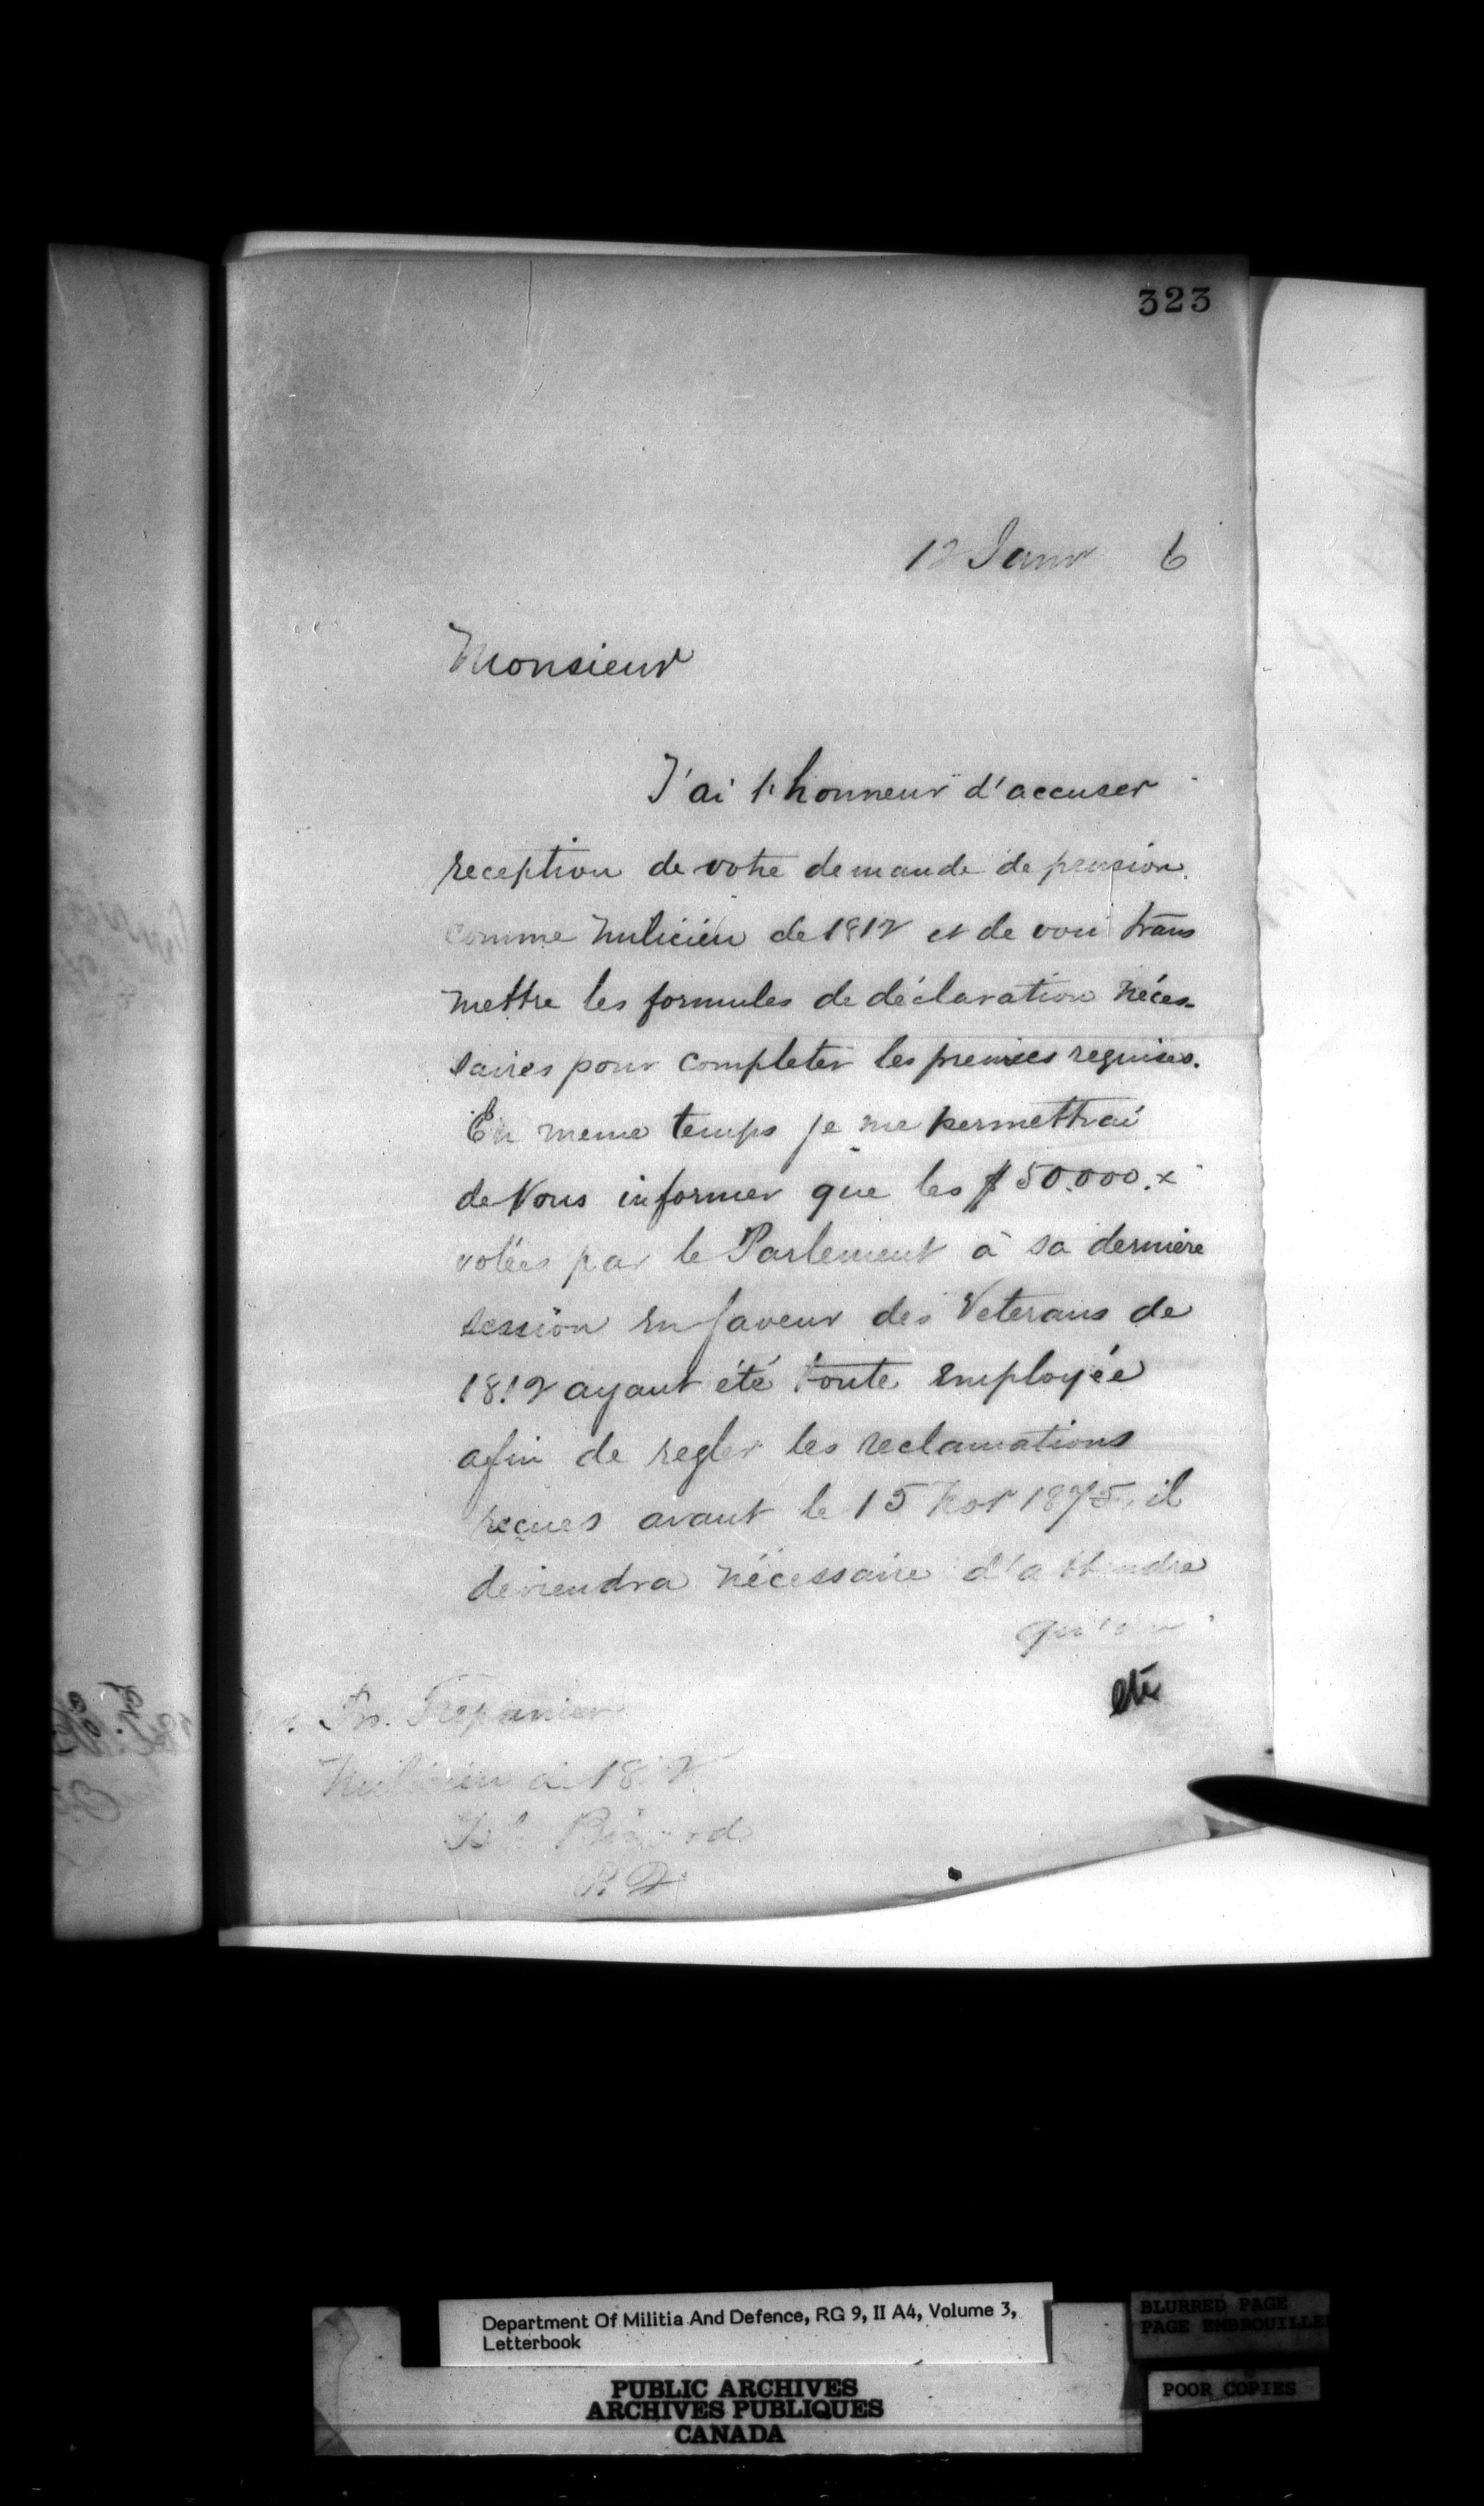 323
12 Janv 6
Monsieur
J'ai l'honneur d'accuser
reception de votre demande de pension
comme milicien de 1812 et de vous trans
mettre les formules de déclaration néces-
saires pour completer les preuves requises.
En meme temps je me permettrai
de vous informer que les $50.000.x
votées par le Parlement à sa derniere
session en faveur des Veterans de
1812 ayant été toute employée
afin de regler les reclamations
reçues avant le 15 Nov 1875, il
deviendra nécessaire d'attendre
etc
Trepanier
Milicien de 1812
Isle Bizard
P. Q
Department Of Militia And Defence, RG 9, II A4, Volume 3,
Letterbook
PUBLIC ARCHIVES
ARCHIVES PUBLIQUES
CANADA
BLURRED PAGE
PAGE EMBROUILLE
POOR COPIES